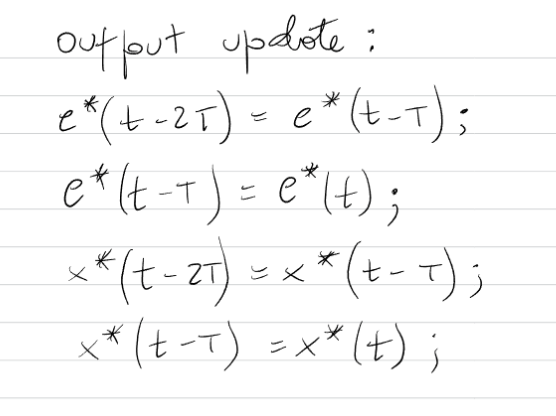 output update :
e*(t-2T) = e*(t-T);
e*(t-T) = e*(t);
x*(t-2T) = x*(t-T);
x*(t-T) = x*(t);